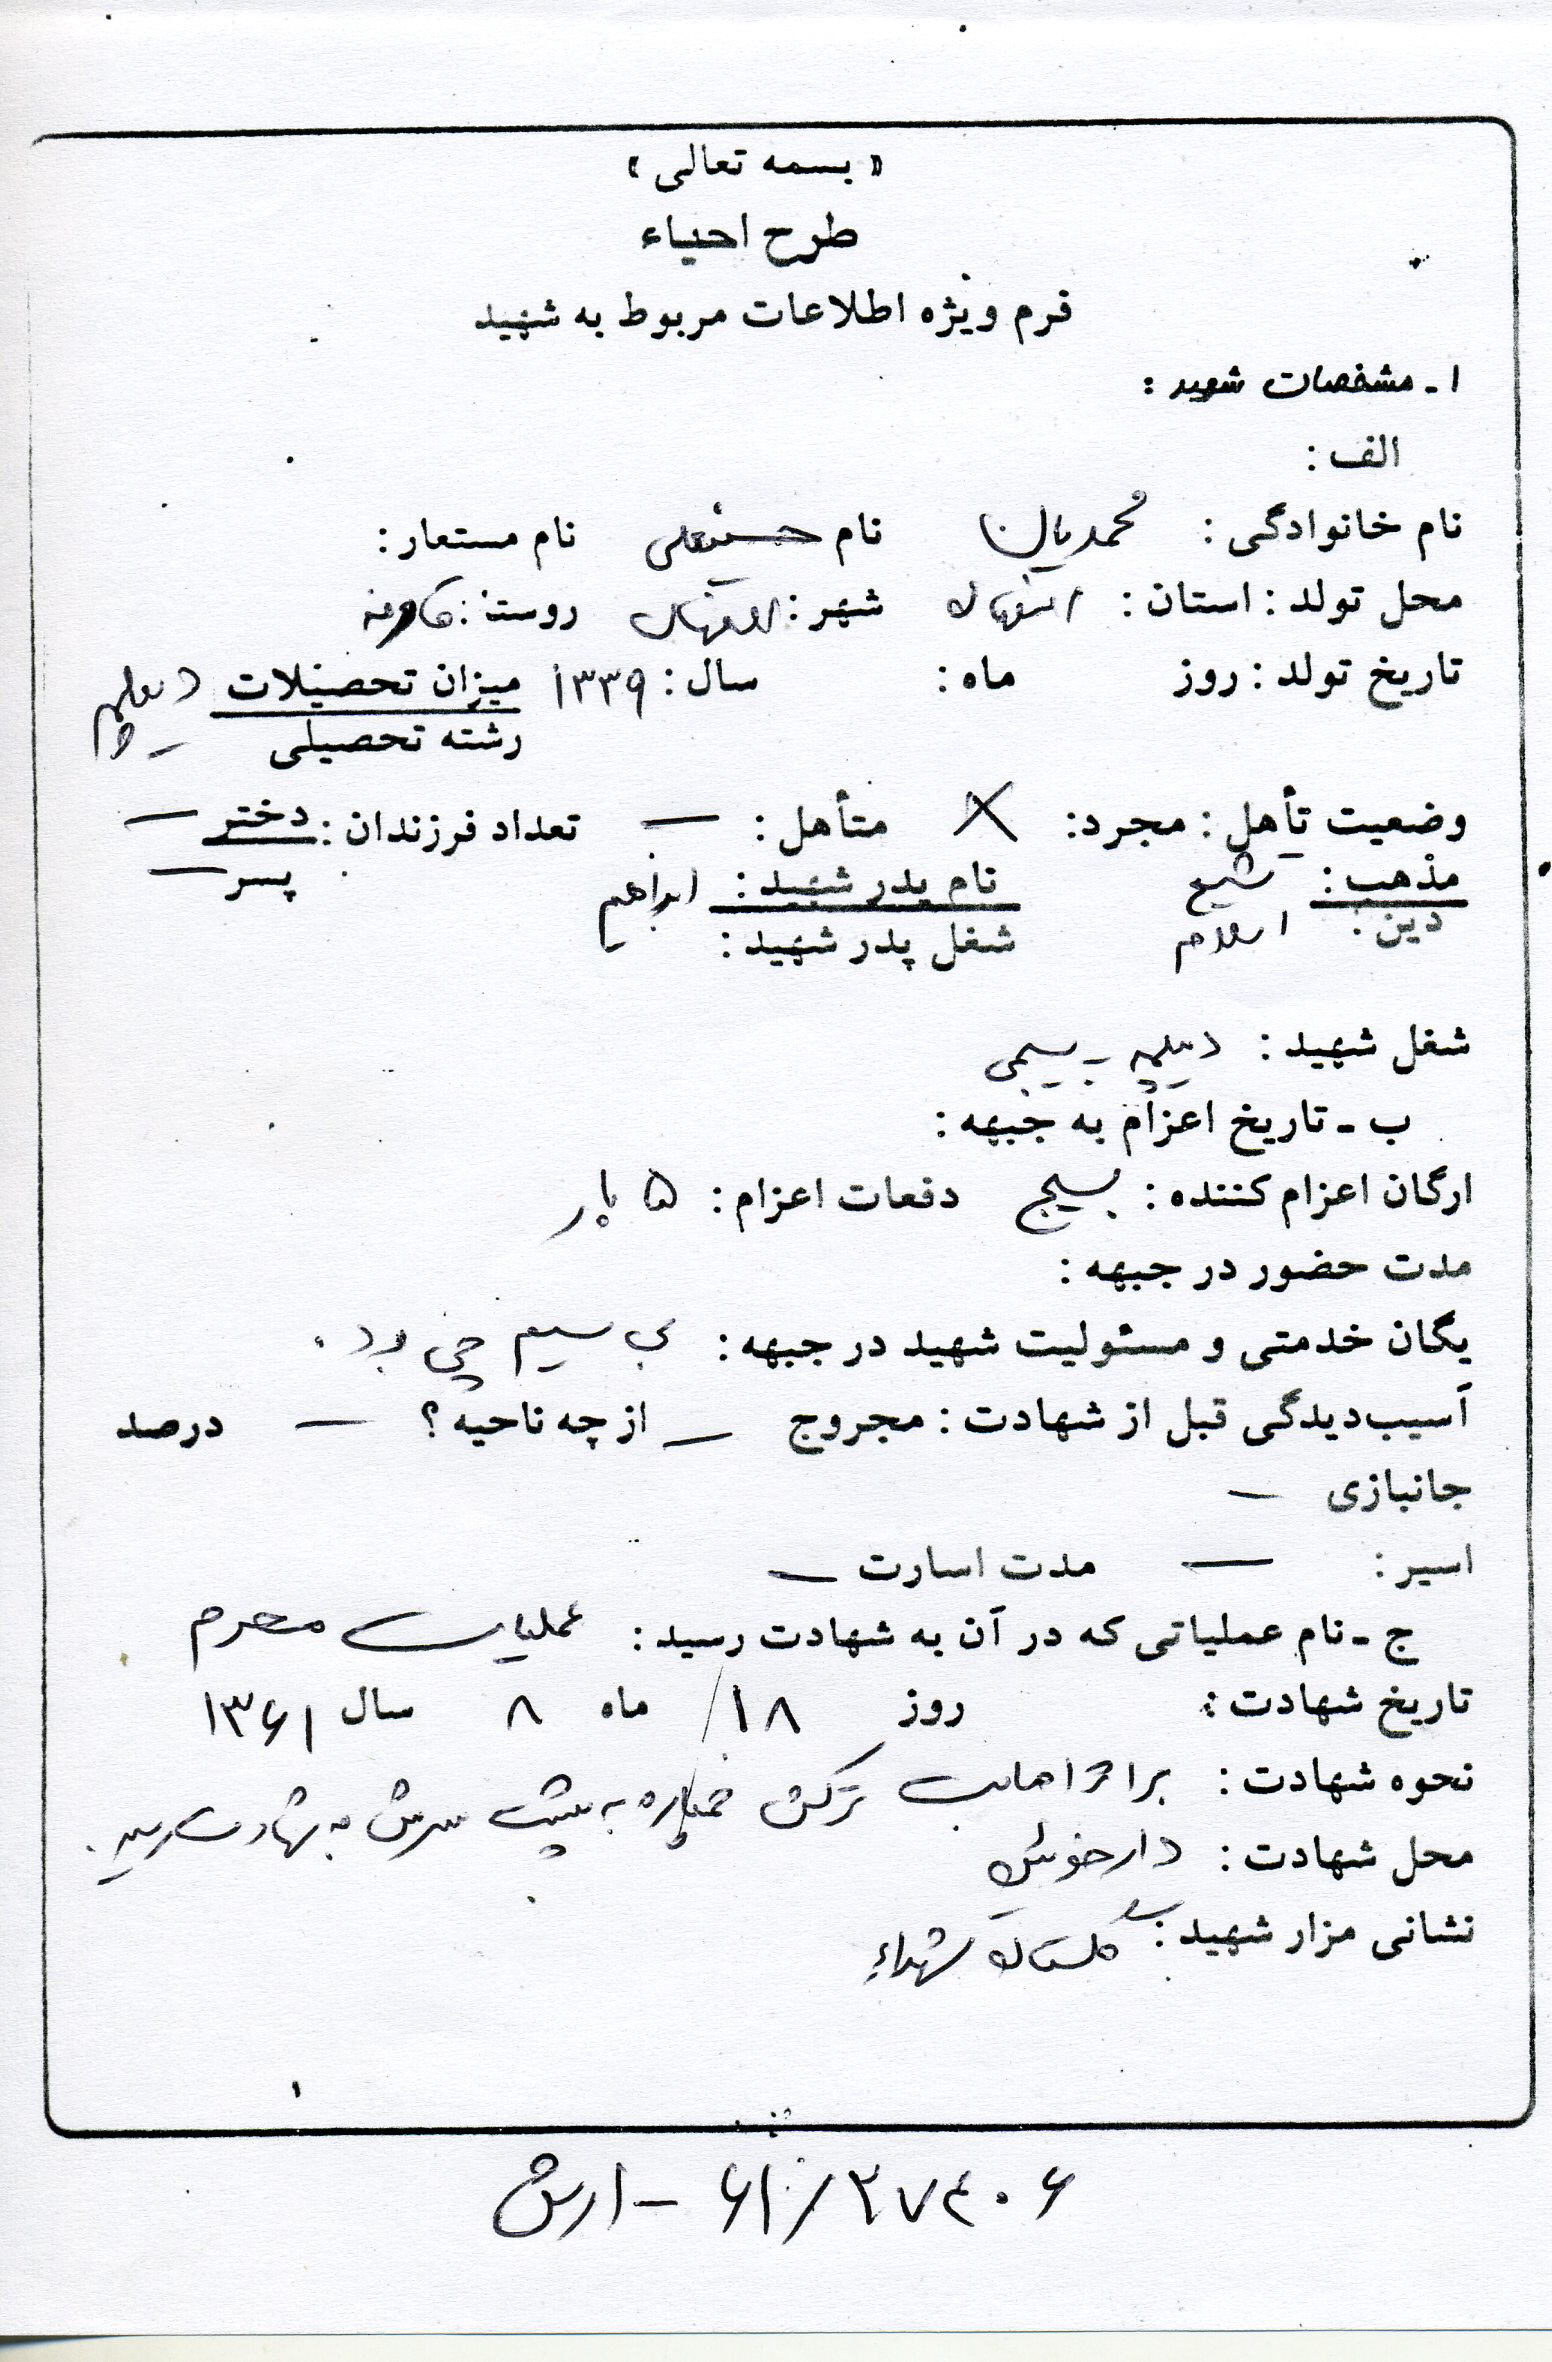 « بسمه تعالی »
طرح احیاء
فرم ویژه اطلاعات مربوط به شهید
۱ ـ مشخصات شهید :
الف :
نام خانوادگی : محمدیان نام حسینعلی نام مستعار :
محل تولد : استان : اصفهان شهر : اصفهان روستا :
تاریخ تولد : روز ماه : سال : ۱۳۳۹ میزان تحصیلات دیپلم
رشته تحصیلی
وضعیت تأهل : مجرد : × متأهل : — تعداد فرزندان : دختر —
پسر —
مذهب : شیعه نام پدر شهید : ابراهیم
دین : اسلام شغل پدر شهید :
شغل شهید : دیپلمه ـ بسیجی
ب ـ تاریخ اعزام به جبهه :
ارگان اعزام کننده : بسیج دفعات اعزام : ۵ بار
مدت حضور در جبهه :
یگان خدمتی و مسئولیت شهید در جبهه : بی سیم چی بود .
آسیب‌دیدگی قبل از شهادت : مجروح — از چه ناحیه ؟ — درصد
جانبازی —
اسیر : — مدت اسارت —
ج ـ نام عملیاتی که در آن به شهادت رسید : عملیات محرم
تاریخ شهادت : روز ۱۸/ ماه ۸ سال ۱۳۶۱
نحوه شهادت : بر اثر اصابت ترکش خمپاره به پشت سرش به شهادت رسید .
محل شهادت : دارخوئین
نشانی مزار شهید : گلستان شهداء
۶۱/۲۷۴۰۶ – ارش